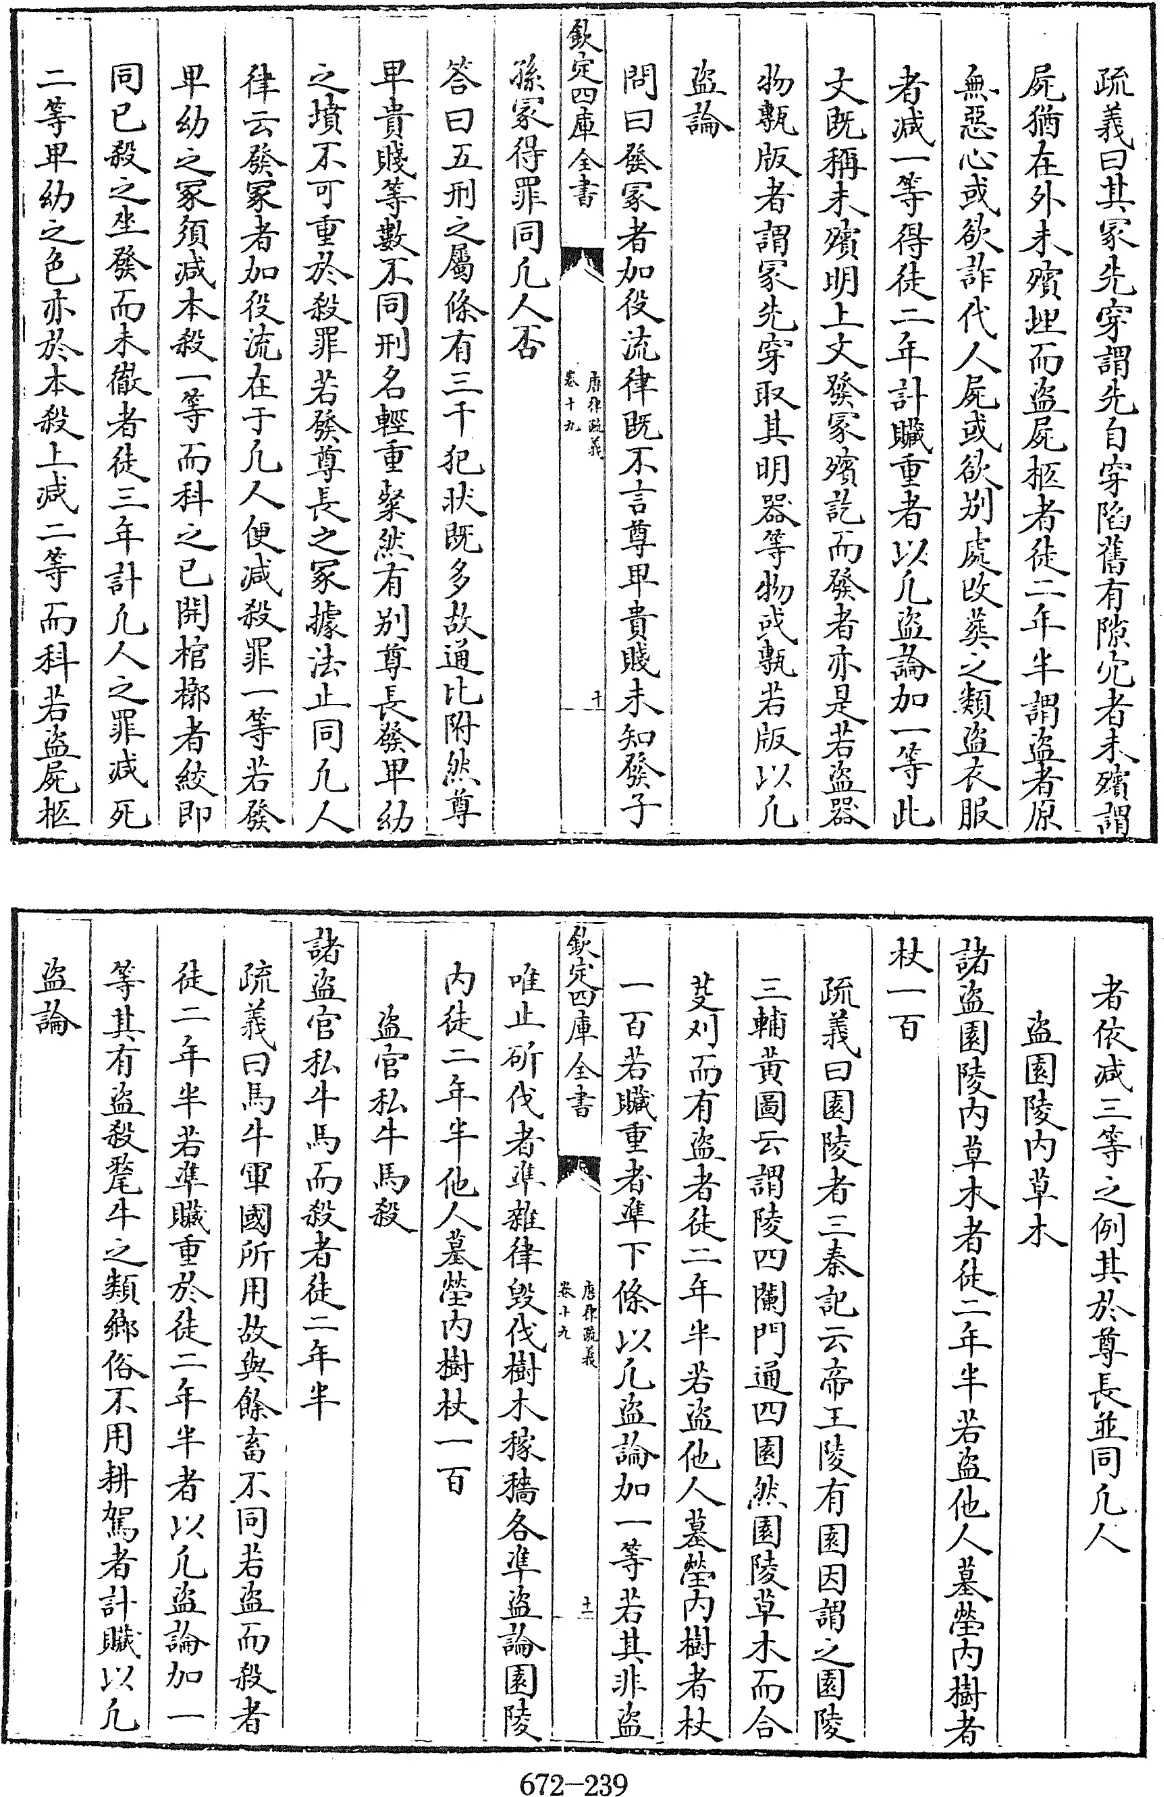 疏義曰其冢先穿謂先自穿陷舊有隙穴者未殯謂
屍猶在外未殯埋而盜屍柩者徒二年半謂盜者原
無惡心或欲詐代人屍或欲别處改葬之類盜衣服
者减一等得徒二年計贓重者以凡盜論加一等此
文既稱未殯明上文發冢殯訖而發者亦是若盜器
物甎版者謂冢先穿取其明器等物或甎若版以凡
盜論
問曰發冢者加役流律既不言尊卑貴賤未知發子
欽定四庫全書
唐律疏義
卷十九
十
孫冢得罪同凡人否
答曰五刑之屬條有三千犯狀既多故通比附然尊
卑貴賤等數不同刑名輕重粲然有别尊長發卑幼
之墳不可重於殺罪若發尊長之冢據法止同凡人
律云發冢者加役流在于凡人便减殺罪一等若發
卑幼之冢須减本殺一等而科之已開棺槨者絞即
同已殺之坐發而未徹者徒三年計凡人之罪减死
二等卑幼之色亦於本殺上减二等而科若盜屍柩
者依减三等之例其於尊長並同凡人
盜園陵内草木
諸盜園陵内草木者徒二年半若盜他人墓塋内樹者
杖一百
疏義曰園陵者三秦記云帝王陵有園因謂之園陵
三輔黄圖云謂陵四闌門通四園然園陵草木而合
芟刈而有盜者徒二年半若盜他人墓塋内樹者杖
一百若贓重者準下條以凡盜論加一等若其非盜
欽定四庫全書
唐律疏義
卷十九
十一
唯止斫伐者準雜律毁伐樹木稼穡各準盜論園陵
内徒二年半他人墓塋内樹杖一百
盜官私牛馬殺
諸盜官私牛馬而殺者徒二年半
疏義曰馬牛軍國所用故與餘畜不同若盜而殺者
徒二年半若準贓重於徒二年半者以凡盜論加一
等其有盜殺犛牛之類鄉俗不用耕駕者計贓以凡
盜論
672-239